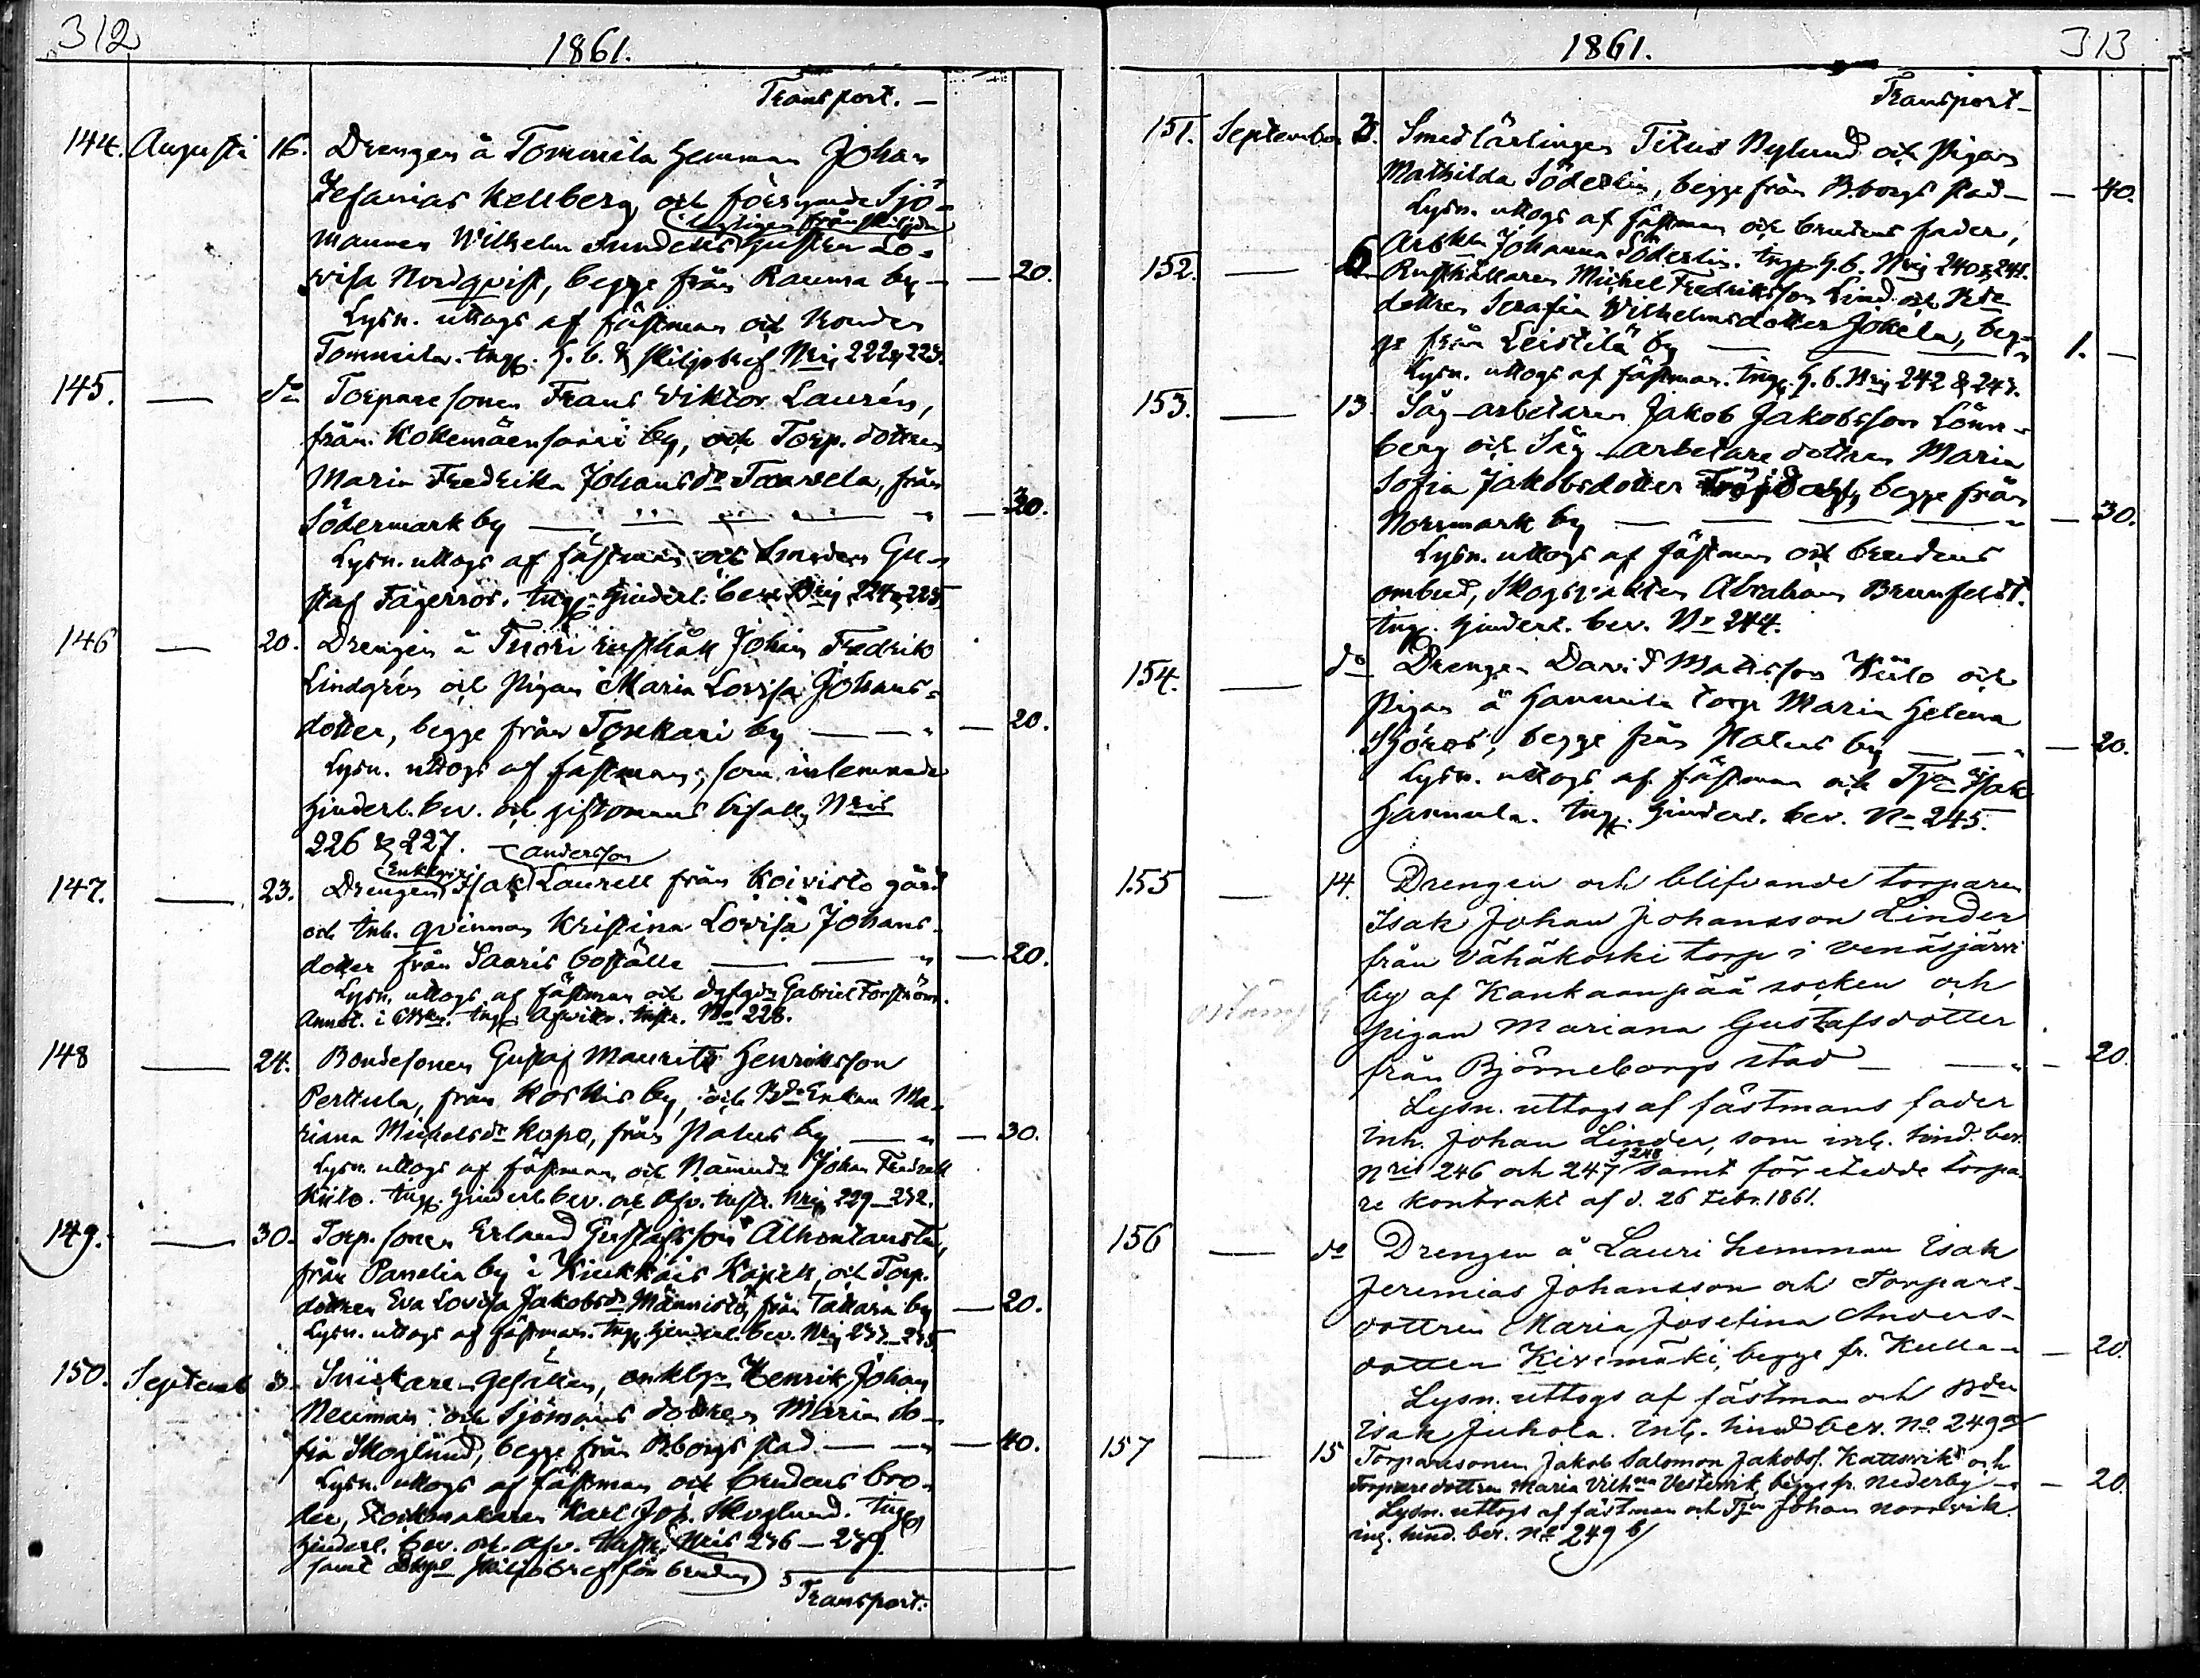 312
1861.
Transport. —
144. Augusti 16. Drengen å Tommila hemman Johan
Zefanias Kellberg och försvunne Sjö-
lagligen från skiljda
mannen Wilhelm Sundells hustru Lo-
visa Nordqvist, begge från Rauma by — — 20.
Lysn. uttogs af fästman och bonden
Tommila. Ingf. H. b. & skiljobref Nris 222 & 223.
145. — do Torparesonen Frans Viktor Laurén,
från Kokemäensaari by, och Torp. dottren
Maria Fredrika Johansdr Taavela, från
Södermark by — — — — " — 20.
Lysn. uttogs af fästman och Smeden Gu-
staf Fagerros. Ingf. Hinderl. bev. Nris 224 & 225.
146 — 20. Drengen å Tuori rusthåll Johan Fredrik
Lindgrén och Pigan Maria Lovisa Johans-
dotter, begge från Torkari by — — " — 20.
Lysn. uttogs af fästman, som inlemnade
Hinderl. bev. och giftomans bifall, Nris
226 & 227.
Andersson
Enkling
147. — 23. Drengen Isak Laurell från Koivisto gård
och Inh. qvinnan Kristina Lovisa Johans-
dotter från Saaris boställe — — " — 20.
Lysn. uttogs af fästman och Gabriel Forsström.
Annot. i Ingf. Afvittr. Instr. No 228.
148 — 24. Bondesonen Gustaf Maurits Henriksson
Perttula, från Koskis by, och Bde Enkan Ma-
riana Michelsdr Kopo, från Nakus by — " — 30.
Lysn. uttogs af fästman och Nämndn Johan Fredrik
Kiilo. Ingf. Hinderl. bev. och Afv. Instr. Nris 229—232.
149. — 30. Torp. sonen Erland Gustafsson Alhontausta,
från Panelia by i Kiukkais Kapell, och Torp.
dottren Eva Lovisa Jakobsdr Männistö, från Tattara by — 20.
Lysn. uttogs af fästman. Ingf. Hinderl. bev. Nris 233—235
150. Septemb 3. Snickare-Gesällen, enklgn Henrik Johan
Neuman och Sjömans dottren Maria So-
fia Skoglund, begge från Bborgs stad — — " — 40.
Lysn. uttogs af fästman och brudens bro-
der, Karl Joh. Skoglund. Ingf.
Hinderl. bev. och Afv. Instr. Nris 236—239.
samt skiljobref för bruden
Transport:
1861.
313
Transport —
151. September 3. Smedlärlingen Titus Nylund och Pigan
Mathilda Söderlin, begge från Bborgs stad — — 40.
Lysn. uttogs af fästman och brudens fader,
Arbkln Johanna Söderlin. Ingf. H. b. Nris 240 & 241.
152. — 6 Rusthållaren Michel Fredriksson Lind och Bde
dottren Serafia Wilhelmsdotter Jokela, beg-
ge från Leistilä by — — — " 1. —
Lysn. uttogs af fästman. Ingf. H. b. Nris 242 & 243.
153. — 13. Såg-arbetaren Jakob Jakobsson Lönn-
berg och Såg-arbetare dottren Maria
Sofia Jakobsdotter Fröjdahl, begge från
Norrmark by — — — — " — 30.
Lysn. uttogs af fästman och brudens
ombud, Skogsvakten Abraham Brunfeldt.
Ingf. Hinderl. bev. No 244.
154. — do Drengen David Mattsson Kiilo och
Pigan å Hannula torp Maria Helena
Sjöroos, begge från Nakus by — — " — 20.
Lysn. uttogs af fästman och Isak
Hannula. Ingf. Hinderl. bev. No 245.
155 — 14. Drengen och blifvande torparen
Isak Johan Johansson Linder
från Vähäkoski torp i Venäsjärvi
by af Kankaanpää socken och
pigan Mariana Gustafsdotter
från Björneborgs stad — — " — 20.
Lysn. uttogs af fästmans fader
Inh. Johan Linder, som inl. hind. bev.
& 248
Nris 246 och 247 samt företedde torpa-
re kontrakt af d. 26 Febr. 1861.
156 — do Drengen å Lauri hemman Isak
Jeremias Johansson och Torpare-
dottren Maria Josefina Anders-
dotter Kivimäki, begge fr. Kulla — 20.
Lysn. uttogs af fästman och Bden
Isak Juhola. Inl. hind bev. No 249 a/
157 — 15 Torparesonen Jakob Salomon Jakobs. Kattsvik och
Torparedottren Maria Vilhna Vestervik, begge fr. Nederby — " — 20
Lysn. uttogs af fästman och Tjn Johan Norrvik.
inl. hind. bev. No 249 b/